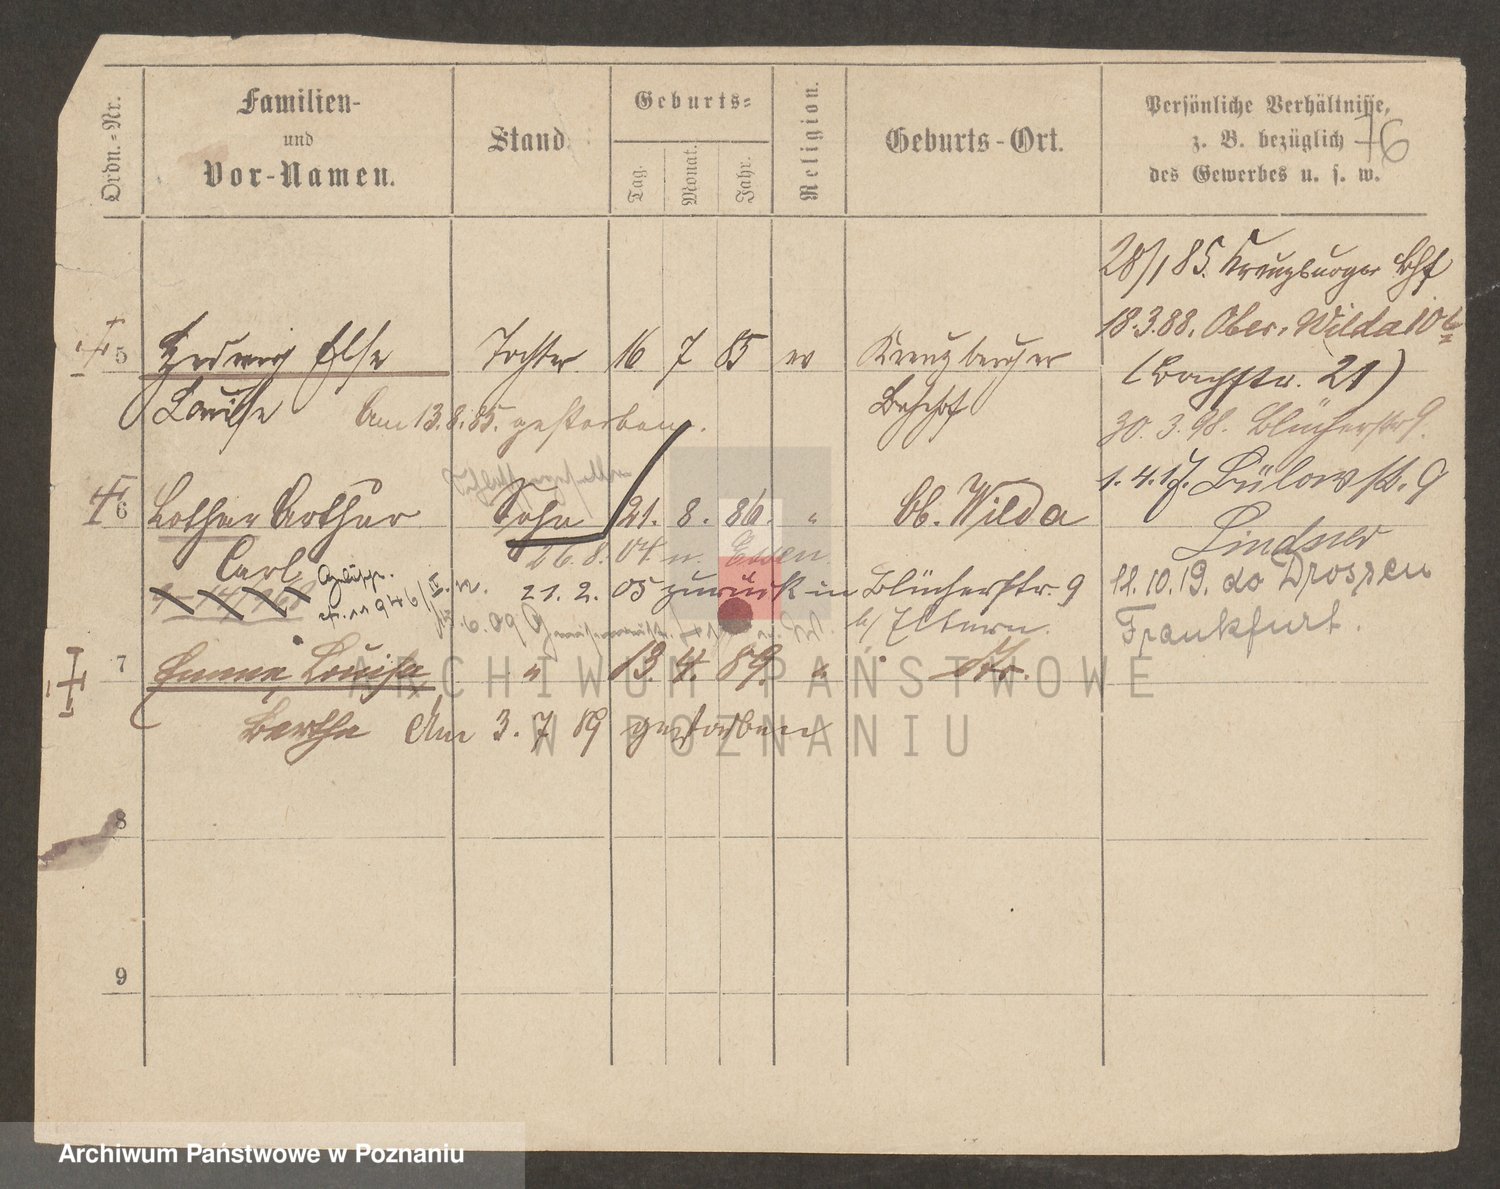 Ordn.-Nr.
Familien-
und
Vor-Namen.
Stand.
Geburts-
Tag.
Monat.
Jahr.
Religion.
Geburts-Ort.
Persönliche Verhältnisse,
z. B. bezüglich
des Gewerbes u. s. w.
76
28/1 85. Kreuzburger Bhf
18.3.88. Ober-Wilda 10b
(Bachstr. 21)
30. 3. 98. Blücherstr 9.
1. 4. 17. Bülowstr. 9
Lindner
11.10.19. do Drossen
Frankfurt.
5 Hedwig Else Tochter 16 7 85 ev Kreuzberger
Louise Am 13.8.85. gestorben. Bahnhof
6 Lothar Arthur Sohn 21. 8. 86. " Ob. Wilda
Carl 26.8.04 n.
21. 2. 05 zurück in Blücherstr. 9
b/ Eltern.
7 Emma, Louisa " 13. 4. 89. " Str.
Bertha Am 3. 7 89 gestorben
8
9
ARCHIWUM PAŃSTWOWE
W POZNANIU
Archiwum Państwowe w Poznaniu